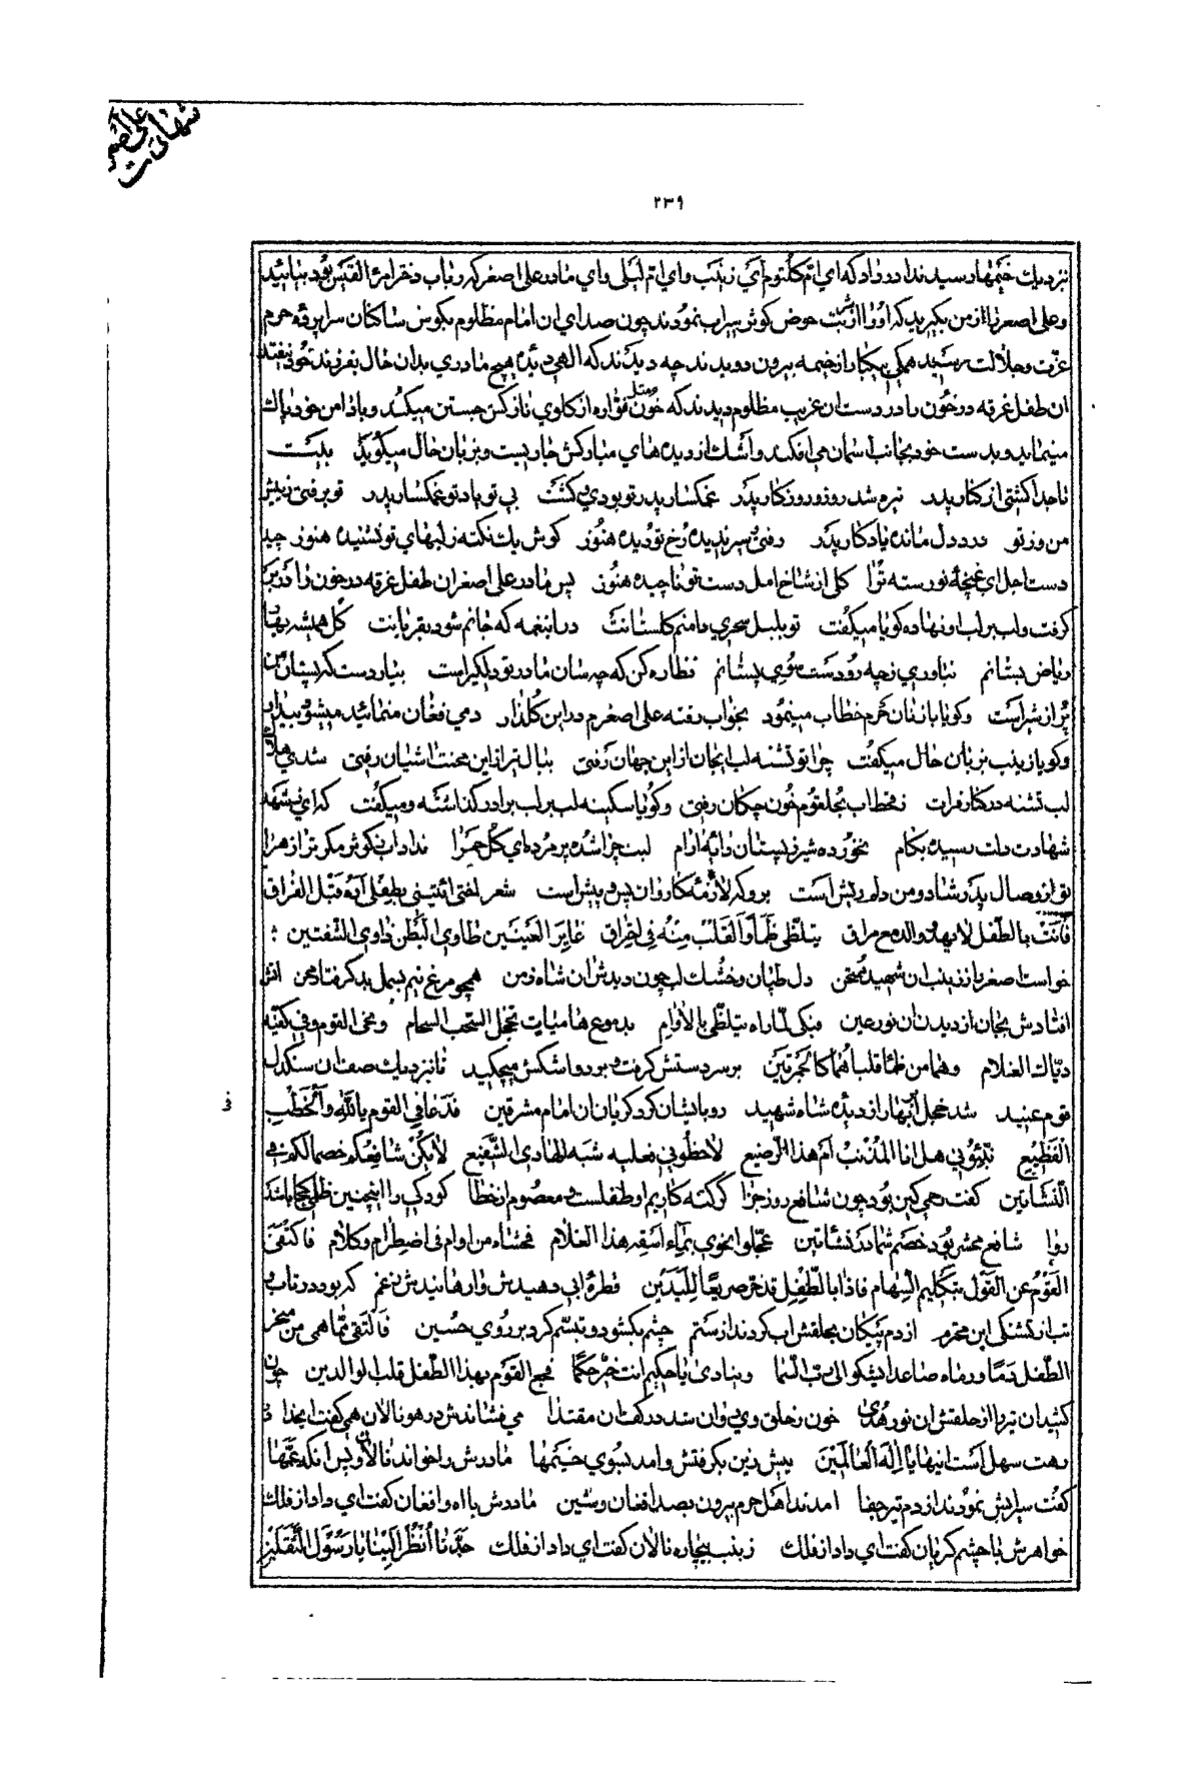 شهادت علی اصغر
۲۳۹
نزدیك خیمها رسید ندا در داد که ای ام کلثوم ای زینب و ای ام لیلی و ای مادر علی اصغر که رباب دختر امرء القیس بود بیائید
و علی اصغر را از من بگیرید که او را از شربت حوض کوثر سیراب نمودند چون صدای ان امام مظلوم بگوش ساکنان سراپرده حرم
عزت و جلالت رسید همگی بیکبار از خیمه بیرون دویدند چه دیدند که الهی دیده هیچ مادری بدان حال بفرزند خود نیفتد
ان طفل غرقه در خون را در دست ان غریب مظلوم دیدند که خون مثل فواره از گلوی نازکش جستن میکند و با دامن خود پاك
مینماید و بدست خود بجانب اسمان می افکند و اشك از دیده های مبارکش جاریست و بزبان حال میگوید بیت
تا جدا گشتی از کنار پدر تیره شد روز و روزگار پدر غمگسار پدر تو بودی و گشت بی تو یاد تو غمگسار پدر تو برفتی ز پیش
من وز تو درد دل مانده یادگار پدر رفتی سیر ندیده رخ تو دیده هنوز گوش یك نکته ز لبهای تو نشنیده هنوز چید
دست اجل ای غنچه نورسته ترا گلی از شاخ امل دست تو ناچیده هنوز پس مادر علی اصغر ان طفل غرقه در خون را در بر
گرفت و لب بر لب او نهاده گویا میگفت تو بلبل سحری دامنم گلستانت درا بنغمه که جانم شود بقربانت گل همیشه بهار
ریاض بستانم نیاوری ز چه رو دست سوی پستانم نظاره کن که چه سان مادر تو دلگیر است بیار دست که پستان من
پر از شیر است و گویا بازنان حرم خطاب مینمود بخواب رفته علی اصغرم در این گلذار دمی فغان منمائید میشود بیدار
و گویا زینب بزبان حال میگفت چرا تو تشنه لب ایجان از این جهان رفتی ببال تیر از این محنت اشیان رفتی شدی هلاك
لب تشنه در کنار فرات ز قحط اب بحلقوم خون چکان رفتی و گویا سکینه لب بر لب برادر گذاشته و میگفت که ای ز شهد
شهادت دلت رسیده بکام نخورده شیر ز پستان دایه ارام لبت چرا شده پژمرده ای گل حمرا نداد اب ز کوثر مگر ترا زهرا
تو از وصال پدر شاد و من دلم ریش است برو که لازمه کاروان پس و پیش است شعر اختی ائتینی بطفلی اره قبل الفراق
فاتت بالطفل لا یهدء و الدمع مراق یتلظی ظمأ و القلب منه فی احتراق غایر العینین طاوی البطن ذاوی الشفتین
خواست اصغر را ز زینب ان شهید ممتحن دل طپان و خشك لب چون دیدش ان شاه زمن همچو مرغ نیم بسمل بد گرفتار محن اتش
افتادش بجان از دیدن ان نور عین فبکی لما راه یتلظی بالاوام بدموع هامیات تخجل السحب السجام و نحی القوم و فی کفیه
ذیاك الغلام و هما من ظما قلباهما کالجمرتین بر سر دستش گرفت و بر رو اشکش میچکید تا بنزدیك صف ان سنگدل
قوم عنید شد خجل ابهار از دیده شاه شهید رو بایشان کرد گریان ان امام مشرقین فدعا فی القوم یالله و الخطب
الفظیع نبئونی هل انا المذنب ام هذا الرضیع لاحظونی فعلیه شبه الهادی الشفیع لا یکن شافعکم خصما لکم فی
النشأتین گفت رحمی کین بود چون شافع روز جزا گر گنه کاریم او طفلست و معصوم از خطا کودکی را اینچنین ظلمی کجا باشد
روا شافع محشر بود خصم شما در نشأتین عجلوا نحوی بماء اسقه هذا الغلام فحشاه من اوام فی اضطرام و کلام فاکتفی
القوم عن القول بتکلیم السهام فاذا بالطفل قد خر صریعا للیدین قطره ابی دهیدش وارهانیدش ز غم که بود در تاب و
تب از تشنگی ابن محترم از دم پیکان بحلقش اب کردند از ستم چشم بگشود و تبسم کرد بر روی حسین فالتقی مما همی من منحر
الطفل دما و رماه صاعدا یشکو الی رب السما و ینادی یا حکیم انت خیر حکما فجع القوم بهذا الطفل قلب الوالدین چون
کشید ان تیر را از حلقش ان نور هدی خون ز حلق وی روان شد در کف ان مقتدا می فشاندش در هوا نالان همی گفت ایخدا در
رهت سهل است اینها یا اله العالمین پیش زین بگرفتش و امد بسوی خیمها مادرش را خواند نالان و پس انگه عمها
گفت سیرابش نمودند از دم تیر جفا امدند اهل حرم بیرون بصد افغان و شین مادرش با اه و افغان گفت ای داد از فلك
خواهرش با چشم گریان گفت ای داد از فلك زینب بیچاره نالان گفت ای داد از فلك جدنا انظر الینا یا رسول الثقلین